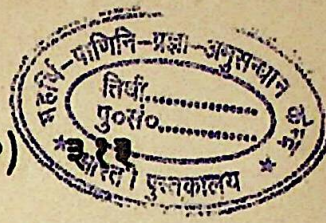 महर्षि-पाणिनि-प्रज्ञा-अनुसन्धान केन्द्र
तिथी..................
पु०सं०.................
३१३
पुस्तकालय